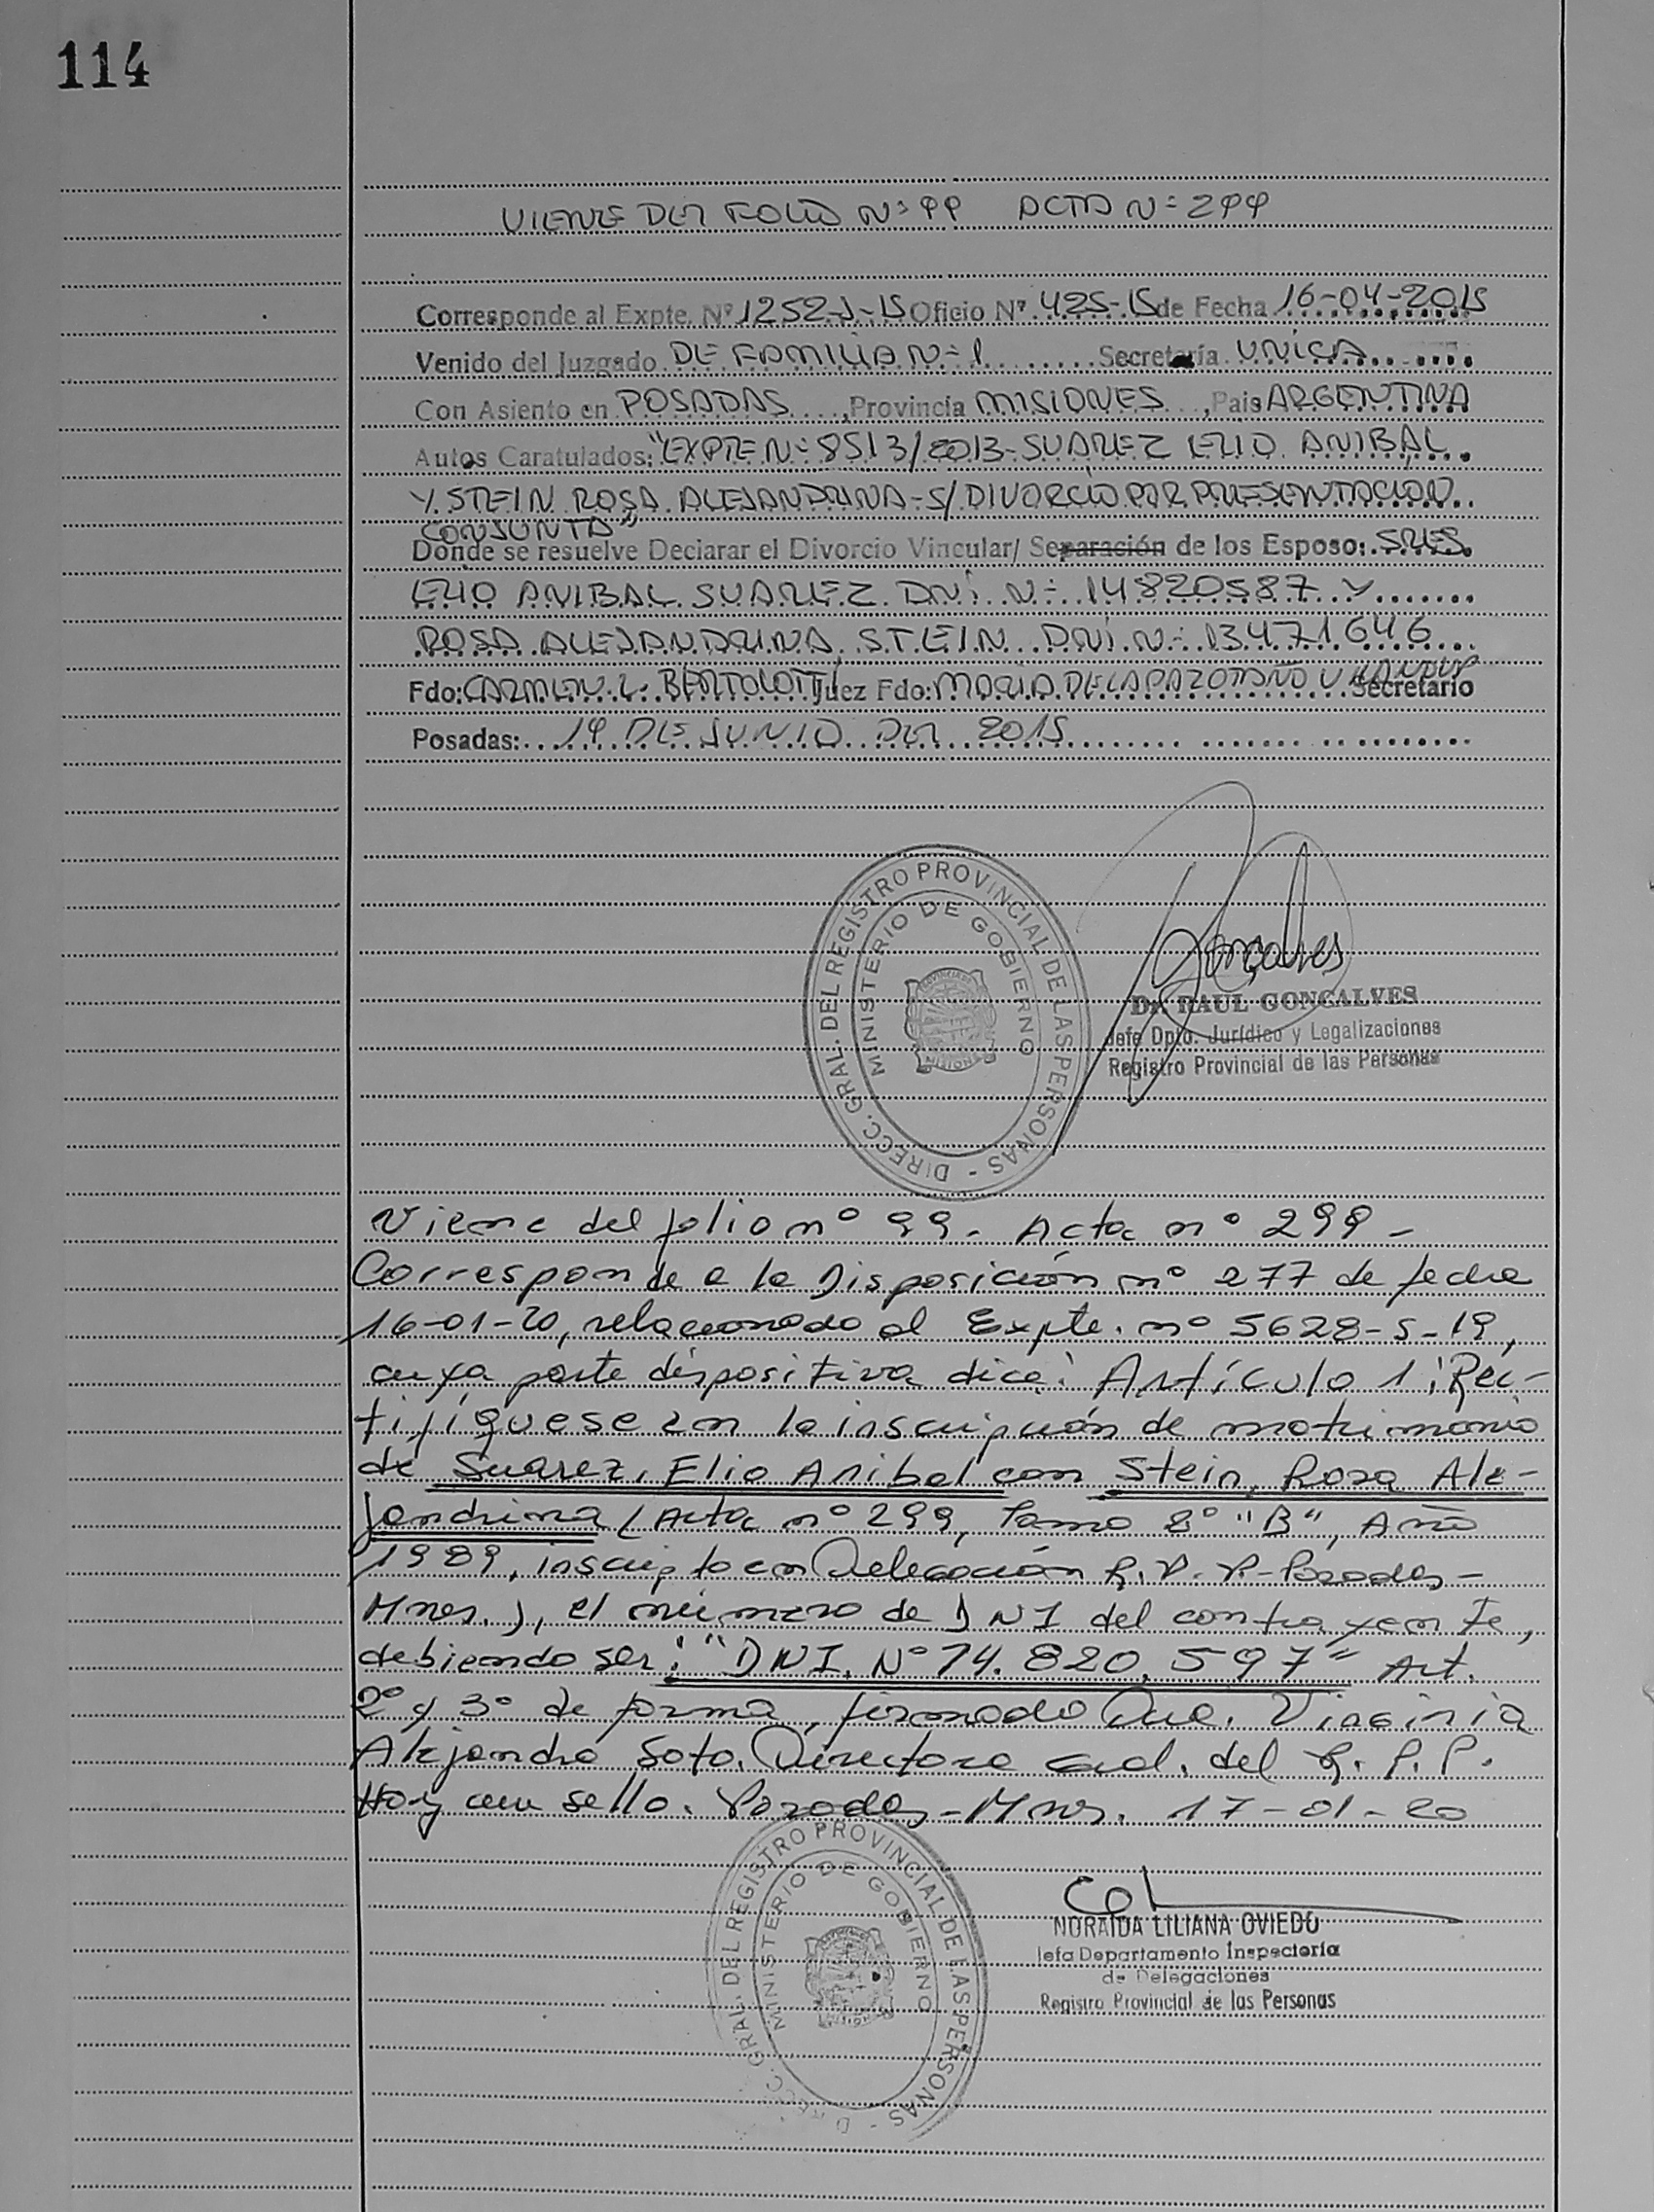 114
VIENE DEL FOLIO Nº 99 ACTA Nº 299
Corresponde al Expte. Nº 1252-J-15 Oficio Nº 425-15 de Fecha 16-04-2015
Venido del Juzgado DE FAMILIA Nº 1 Secretaría UNICA
Con Asiento en POSADAS, Provincia MISIONES, Pais ARGENTINA
Autos Caratulados: "EXPTE Nº 8513/2013-SUAREZ ELIO ANIBAL
Y STEIN ROSA ALEJANDRINA-S/DIVORCIO POR PRESENTACION
CONJUNTA"
Donde se resuelve Declarar el Divorcio Vincular/ Separación de los Esposo: SRES.
ELIO ANIBAL SUAREZ DNI Nº 14820587 Y
ROSA ALEJANDRINA STEIN DNI Nº 13471646
Fdo: CARMEN L. BERTOLOTTI Juez Fdo: MARIA DE LA PAZ Secretario
Posadas: 19 DE JUNIO DEL 2015
DIRECC. GRAL. DEL REGISTRO PROVINCIAL DE LAS PERSONAS -
MINISTERIO DE GOBIERNO
PROVINCIA DE
MISIONES
Goncalves
Dr. RAUL GONCALVES
Jefe Dpto. Jurídico y Legalizaciones
Registro Provincial de las Personas
Viene del folio nº 99. Acta nº 299-
Corresponde a la Disposición nº 277 de fecha
16-01-20, relacionado al Expte. nº 5628-S-19,
cuya parte dispositiva dice: Artículo 1: Rec-
tifíquese en la inscripción de matrimonio
de Suarez, Elio Anibal con Stein, Rosa Ale-
jandrina (Acta nº 299, Tomo 2º "B", Año
1989, inscripto en Delegación R.P.P-Posadas-
Mnes.), el número de DNI del contrayente,
debiendo ser: "DNI. Nº 14.820.597" Art.
2º y 3º de forma, firmado Dra. Virginia
Alejandra Soto. Directora Gral. del R.P.P.
Hay un sello. Posadas-Mnes. 17-01-20
DIRECC. GRAL. DEL REGISTRO PROVINCIAL DE LAS PERSONAS -
MINISTERIO DE GOBIERNO
NORAIDA LILIANA OVIEDO
Jefa Departamento Inspectoría
de Delegaciones
Registro Provincial de las Personas